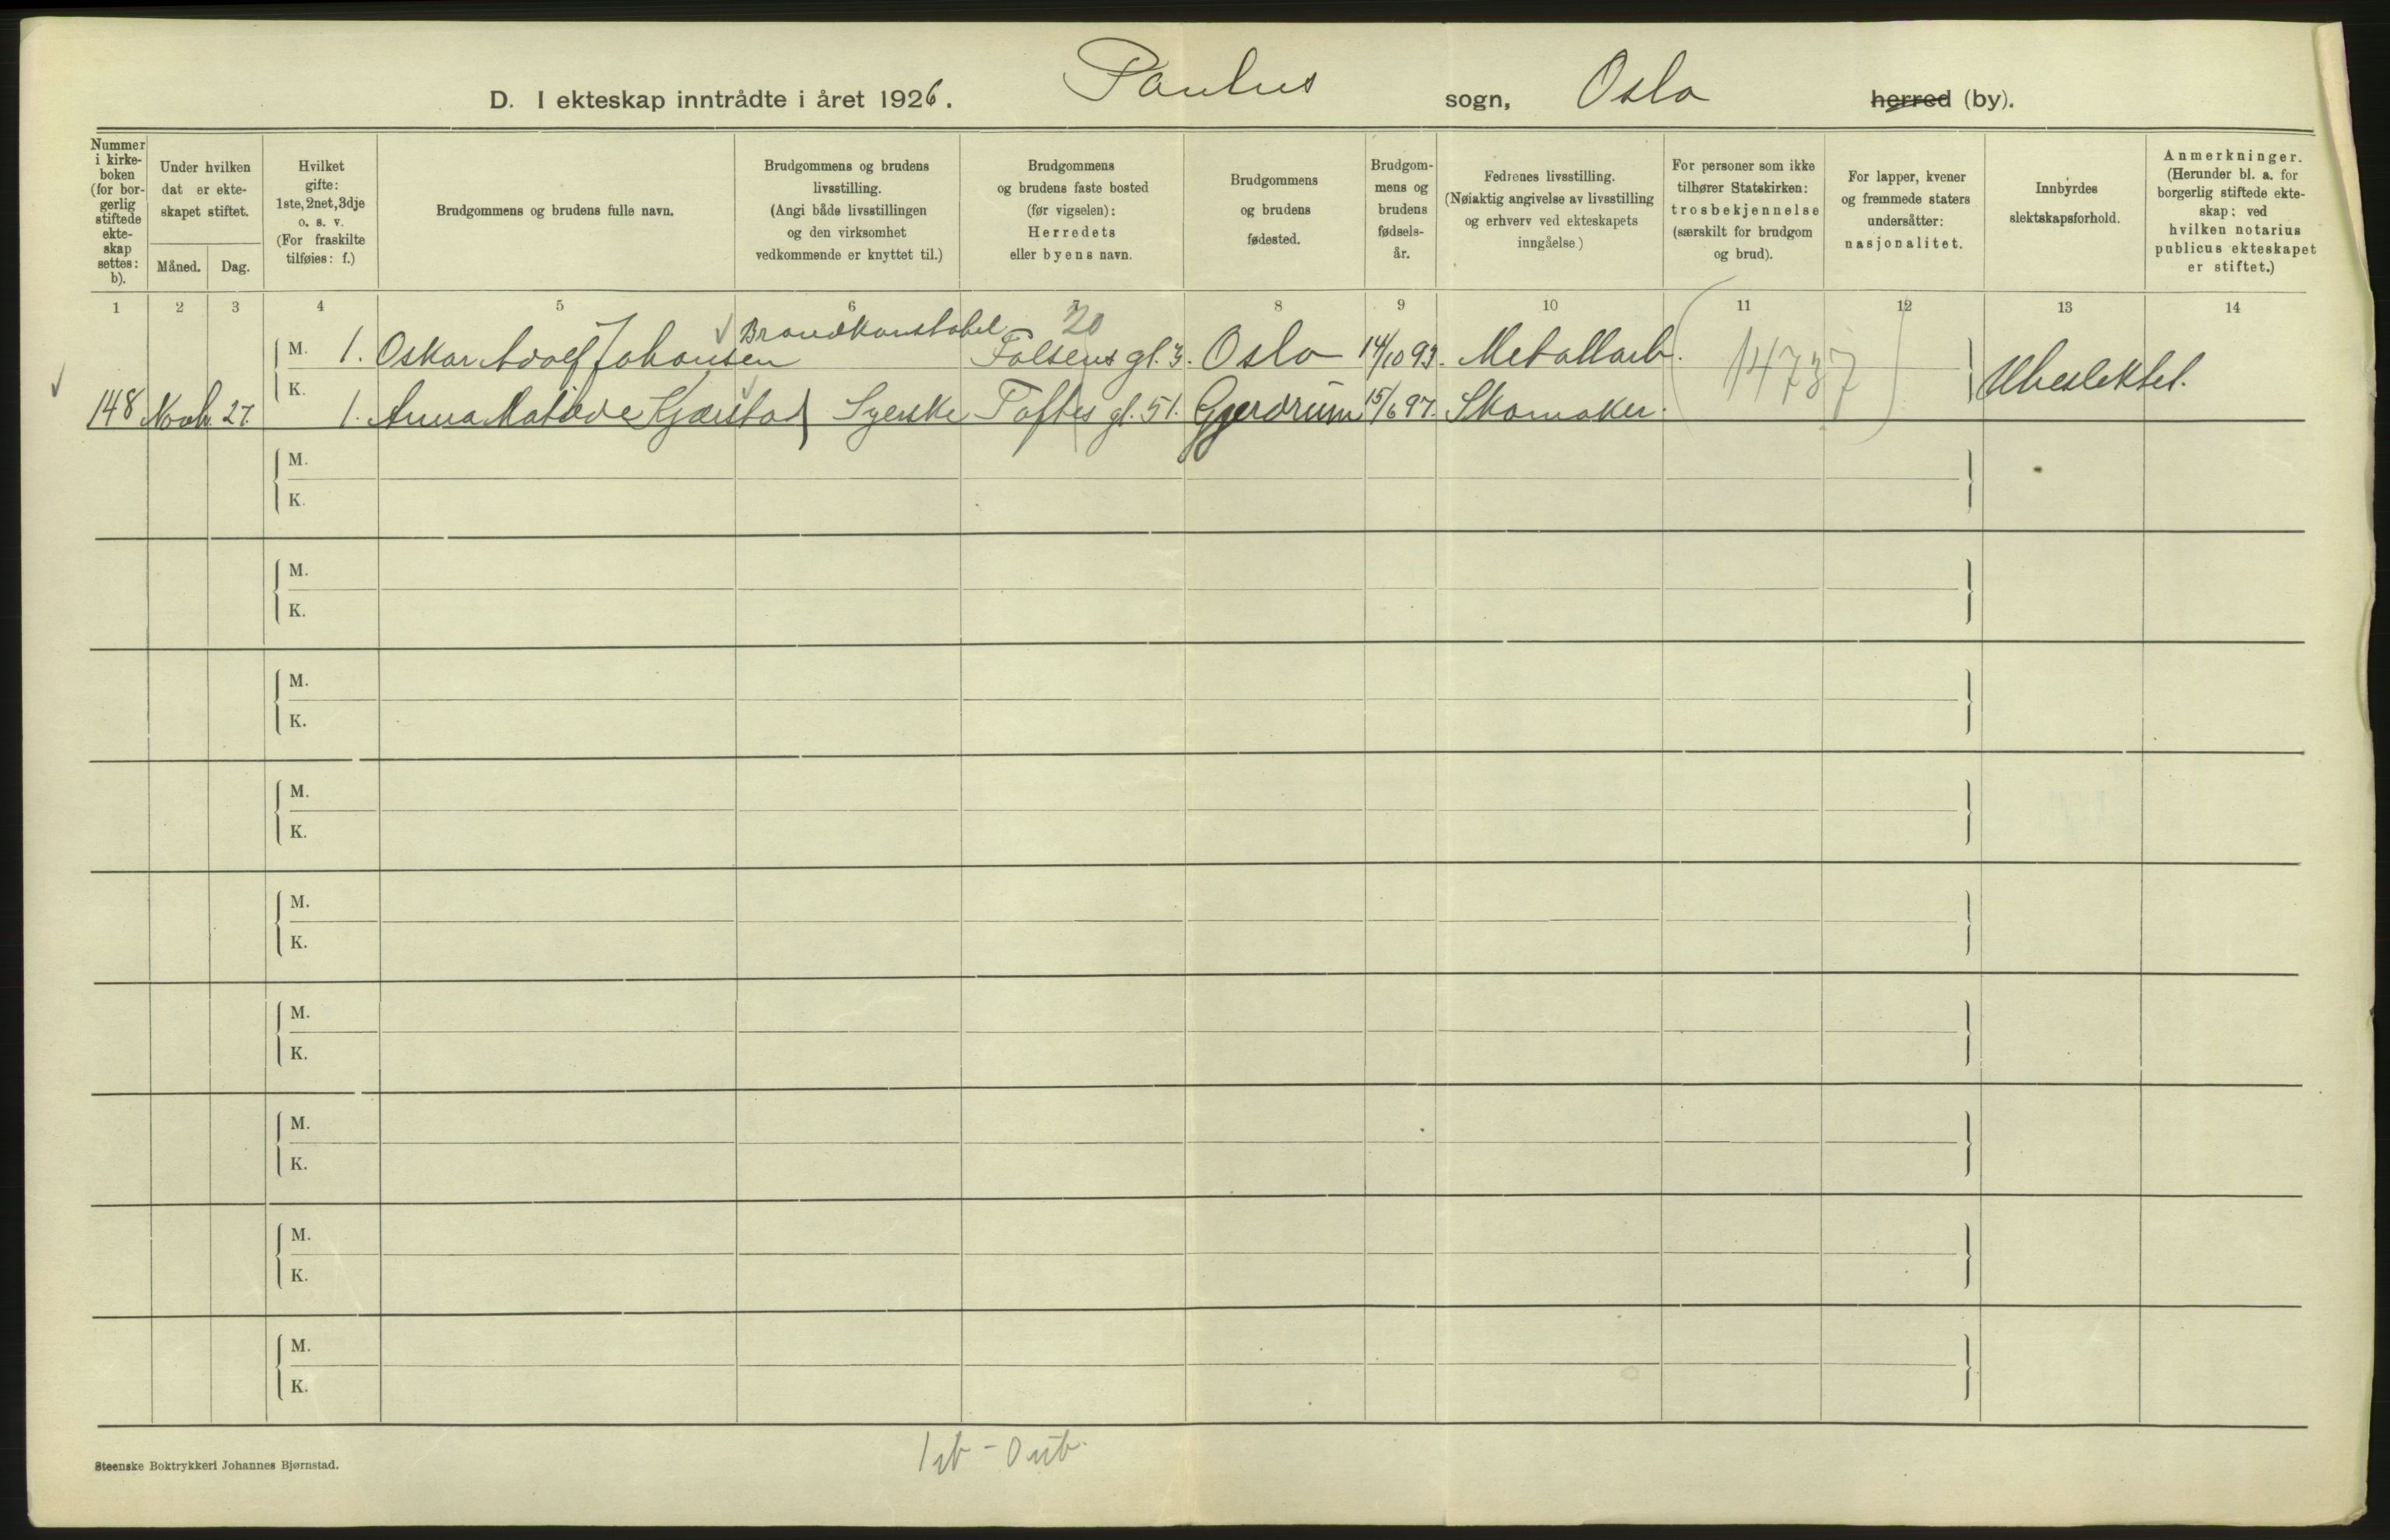 D. I ekteskap inntrådte i året 1926. Paulus sogn, Oslo herred (by).
Nummer i kirke-boken (for bor-gerlig stiftede ekte-skap settes: b).
Under hvilken dat er ekte-skapet stiftet.
Måned.
Dag.
Hvilket gifte: 1ste, 2net, 3dje o. s. v. (For fraskilte tilføies: f.)
Brudgommens og brudens fulle navn.
Brudgommens og brudens livsstilling. (Angi både livsstillingen og den virksomhet vedkommende er knyttet til.)
Brudgommens og brudens faste bosted (før vigselen): Herredets eller byens navn.
Brudgommens og brudens fødested.
Brudgom-mens og brudens fødsels-år.
Fedrenes livsstilling. (Nøiaktig angivelse av livsstilling og erhverv ved ekteskapets inngåelse)
For personer som ikke tilhører Statskirken: trosbekjennelse (særskilt for brudgom og brud).
For lapper, kvener og fremmede staters undersåtter: nasjonalitet.
Innbyrdes slektskapsforhold.
Anmerkninger. (Herunder bl. a. for borgerlig stiftede ekte-skap: ved hvilken notarius publicus ekteskapet er stiftet.)
1 2 3 4 5 6 7 8 9 10 11 12 13 14
20
M. 1. Oskar Adolf Johansen Brandkonstabel Falsens gt. 3. Oslo 14/10 93. Metallarb. (14737) Ubeslektet.
148 Novb. 27. K. 1. Anna Matilde Kjærstad Syerske Toftes gt. 51. Gjerdrum 15/6 97. Skomaker.
M.
K.
M.
K.
M.
K.
M.
K.
M.
K.
M.
K.
M.
K.
M.
K.
M.
K.
Steenske Boktrykkeri Johannes Bjørnstad.